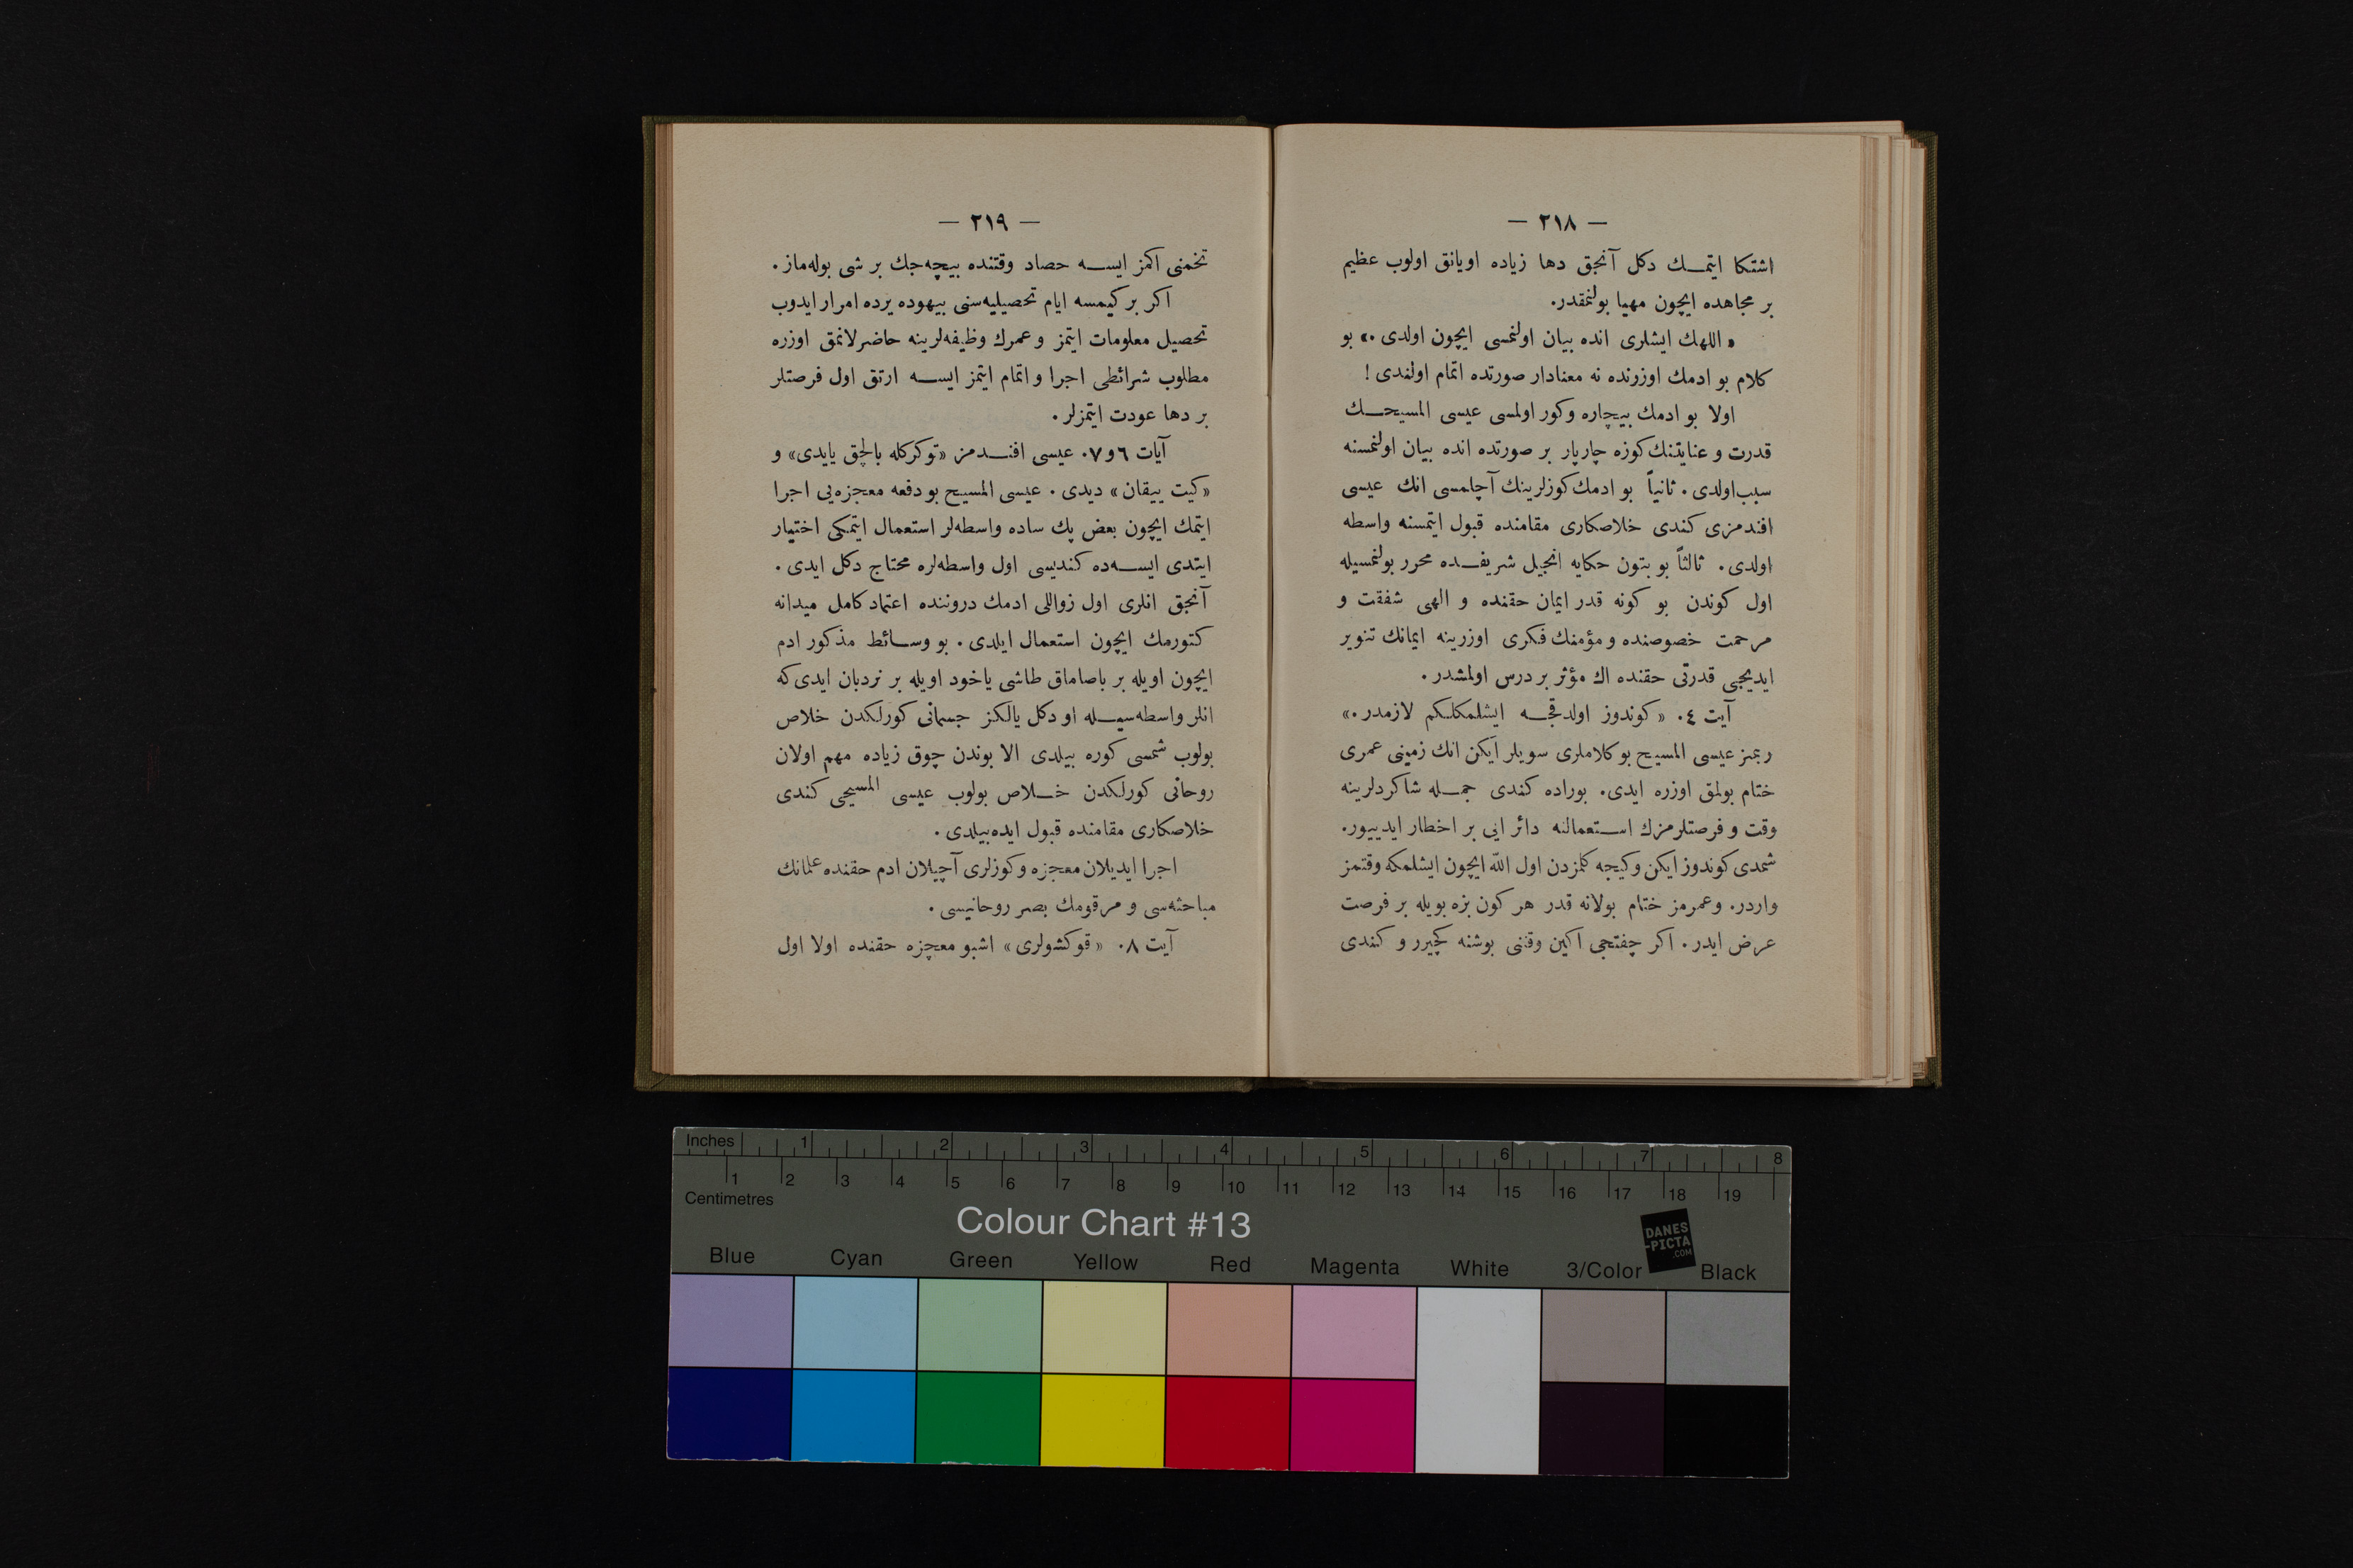 — ٢١٨ —
اشتكا ايتمـك دكل آنجق دها زياده اويانق اولوب عظيم
بر مجاهده ايچون مهيا بولنمقدر.
« اللهك ايشلرى انده بيان اولنمسى ايچون اولدى .» بو
كلام بو ادمك اوزرنده نه معنادار صورتده اتمام اولندى !
اولا بو ادمك بيچاره وكور اولمسى عيسى المسيحـك
قدرت و عنايتنك كوزه چارپار بر صورتده انده بيان اولنمسنه
سبب اولدى . ثانياً بو ادمك كوزلرينك آچلمسى انك عيسى
افندمزى كندى خلاصكارى مقامنده قبول ايتمسنه واسطه
اولدى . ثالثاً بو بتون حكايه انجيل شريفـده محرر بولنمسيله
اول كوندن بو كونه قدر ايمان حقنده و الهى شفقت و
مرحمت خصوصنده و مؤمنك فكرى اوزرينه ايمانك تنوير
ايديجى قدرتى حقنده اك مؤثر بر درس اولمشدر .
آيت ٤. « كوندوز اولدقجـه ايشلمكلكم لازمدر .»
ربمز عيسى المسيح بو كلاملرى سويلر ايكن انك زمينى عمرى
ختام بولمق اوزره ايدى. بوراده كندى جمـله شاكردلرينه
وقت و فرصتلرمزك اسـتعمالنه دائر ايى بر اخطار ايدييور.
شمدى كوندوز ايكن وكيجه كلمزدن اول الله ايچون ايشلمكه وقتمز
واردر. وعمرمز ختام بولانه قدر هر كون بزه بويله بر فرصت
عرض ايدر . اكر چفتجى اكين وقتنى بوشنه كچيرر و كندى
— ٢١٩ —
تخمنى اكمز ايسـه حصاد وقتنده بيچه‌جك بر شى بوله‌ماز .
اكر بر كيمسه ايام تحصيليه‌سنى بيهوده يرده امرار ايدوب
تحصيل معلومات ايتمز و عمرك وظيفه‌لرينه حاضرلانمق اوزره
مطلوب شرائطى اجرا و اتمام ايتمز ايسـه ارتق اول فرصتلر
بر دها عودت ايتمزلر .
آيات ٦و٧. عيسى افنـدمز «توكركله بالچق يايدى» و
«كيت ييقان» ديدى . عيسى المسيح بو دفعه معجزه‌يى اجرا
ايتمك ايچون بعض پك ساده واسطه‌لر استعمال ايتمكى اختيار
ايتدى ايسـه‌ده كنديسى اول واسطه‌لره محتاج دكل ايدى .
آنجق انلرى اول زواللى ادمك دروننده اعتماد كامل ميدانه
كتورمك ايچون استعمال ايلدى . بو وسـائط مذكور ادم
ايچون اويله بر باصاماق طاشى ياخود اويله بر نردبان ايدى كه
انلر واسطه‌سيـله او دكل يالكز جسمانى كورلكدن خلاص
بولوب شمسى كوره بيلدى الا بوندن چوق زياده مهم اولان
روحانى كورلكدن خـلاص بولوب عيسى المسيحى كندى
خلاصكارى مقامنده قبول ايده‌بيلدى .
اجرا ايديلان معجزه و كوزلرى آچيلان ادم حقنده علمانك
مباحثه‌سى و مرقومك بصر روحانيسى .
آيت ٨. «قوكشولرى» اشبو معجزه حقنده اولا اول
Inches 1 2 3 4 5 6 7 8
1 2 3 4 5 6 7 8 9 10 11 12 13 14 15 16 17 18 19
Centimetres
Colour Chart #13
DANES
-PICTA
.COM
Blue Cyan Green Yellow Red Magenta White 3/Color Black